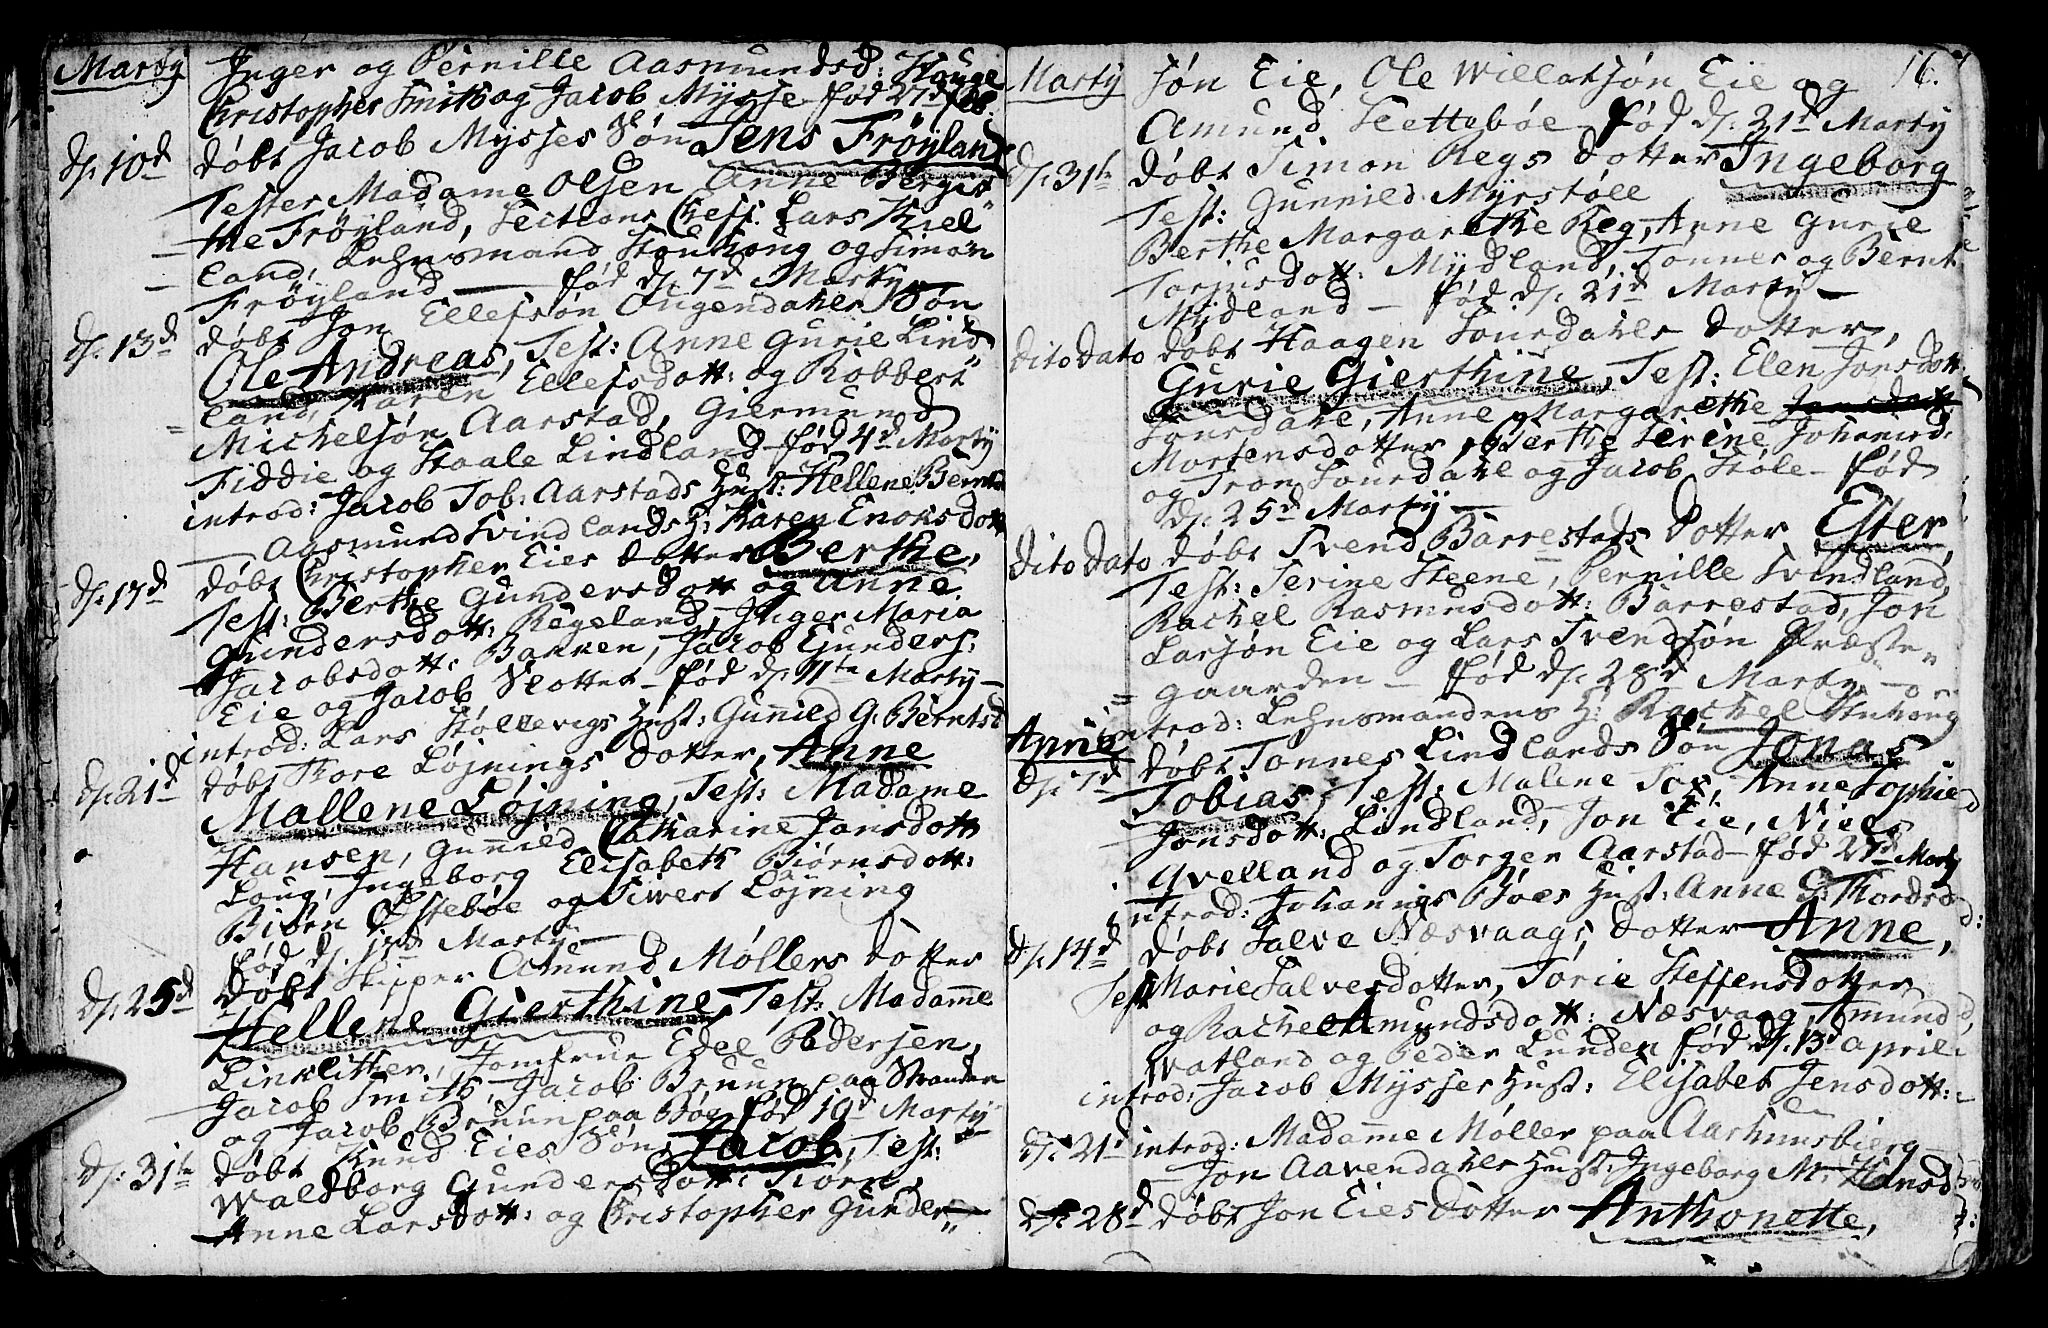 Marty Inger og Pernille Aasmundsd: Hauge
Christopher Smith og Jacob Mysse fød 27d Feb:
d: 10d døbt Jacob Mysses Søn Jens Frøyland
Tester Madame Olsen Anne Bergit
the Frøyland, Sections Chef: Lars Kiel
land, Lehnsmand Stenhong og Simon
Frøyland — fød d: 7d Marty
d: 13d døbt Jon Ellefsøn Ougendahls Søn
Ole Andreas, Test: Anne Gurie Lind
land, Karen Ellefsdott: og Robbert
Michelsøn Aarstad, Giermund
Fiddie og Staale Lindland fød 4d Marty
introd: Jacob Tob: Aarstads Hust: Hellene Bernts
— Aasmund Svindlands H: Karen Enoksdott
d: 17d døbt Christopher Eies dotter Berthe,
Test: Berthe Gundersdott og Anne
Gundersdott: Regeland, Inger Maria
Jacobsdott: Bakken, Jacob Gunders:
Eie og Jacob Slottet — fød d: 11te Marty —
introd: Lars Stollevigs Hust: Gunild G: Berntsd
d: 21d døbt Thore Løjnings Dotter, Anne
Mallene Løjning, Test: Madame
Hansen, Gunild Catharine Jansdott
Loug, Ingeborg Elisabeth Biørnsdott:
Biørn Østebøe og Sivert Løjning
fød d. 17d Marty —
d: 25d døbt Skipper Amund Møllers Dotter
Hellene Gierthine, Test: Madame
Linklither, Jomfrue Edel Pedersen,
Jacob Smith, Jacob Bruun paa Stranden
og Jacob Bruun paa Bøe fød 19d Marty
d: 31te døbt Knud Eies Søn Jacob, Test:
Waldborg Gundersdott: Tiørn,
Anne Larsdott: og Christopher Gunder
Marty søn Eie, Ole Willatsøn Eie og 16.
Amund Slettebøe fød d: 21d Marty
d: 31te døbt Simon Regs Dotter Ingeborg
Test: Gunnild Myrstøll
Berthe Margarethe Reg, Anne Gurie
Torjusdott: Mydland, Tønnes og Bernt
Mydland — fød d: 21d Marty —
dito Dato døbt Haagen Sourdahls Dotter,
Gurie Gierthine, Test: Elen Jonsdott
Sourdahl, Anne Margarethe
Mortensdotter, Berthe Serine Johansd:
og Tron Sourdahl og Jacob Støle — fød
d: 25d Marty —
dito Dato døbt Svend Barrestads Dotter Ester,
Test: Serine Steene, Pernille Svindland,
Rachel Rasmusdott: Barrestad, Jon
Larsøn Eie og Lars Svendsøn Præste
gaarden — fød d: 28d Marty —
introd: Lehnsmandens H: Rachel Stenhong
April
d: 7d døbt Tønnes Lindlands Søn Jonas
Tobias, Test: Malene Tox, Anne Sophie
Jonsdott: Lindland, Jon Eie, Niels
Qvelland og Torger Aarstad — fød 27d Marty
introd: Johannis Bøes Hust: Anne G: Thordsd:
d: 14d døbt Salve Næsvaags Dotter Anne,
Test Marie Salvesdotter, Torie Steffensdotter
og Rachel Amundsdott: Næsvaag, Amund
Watland og Peder Lunden fød d: 13d April
introd: Jacob Mysses Hust: Elisabet Jensdott:
d: 21d introd: Madamme Møller paa Aarhuusbierg
— Jon Aavendahls Hust: Ingeborg M: Hansd
d: 28d døbt Jon Eies Dotter Anthonette,